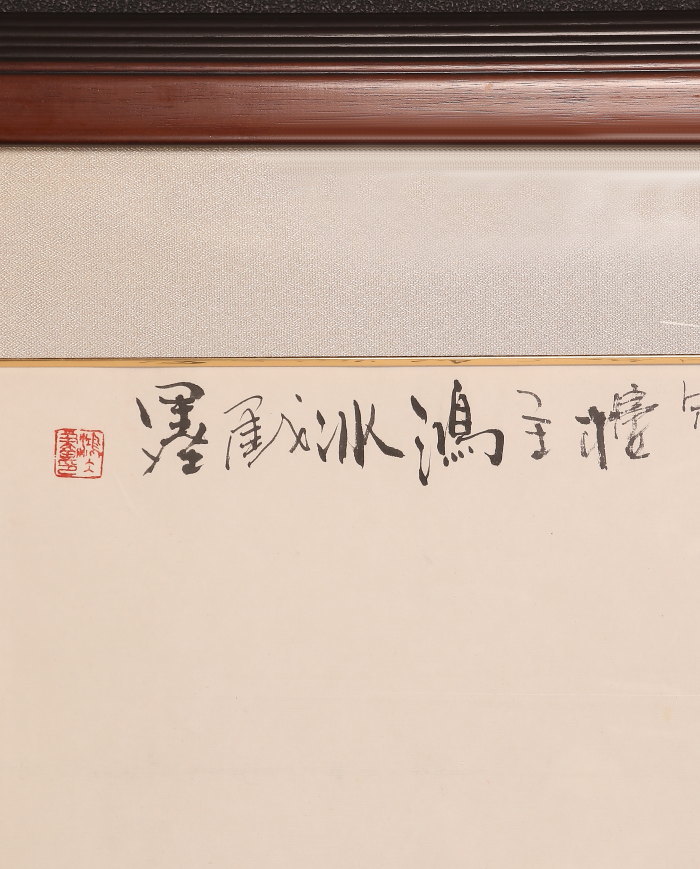 樓主鴻冰戲墨